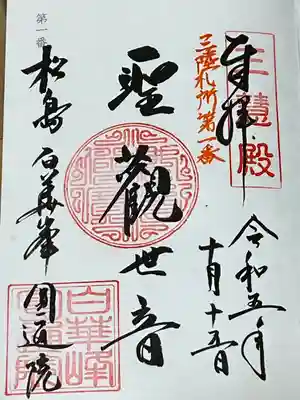 奉拝
三慧殿
三陸札所第一番
令和五年
十月十五日
聖觀世音
第一番
松島 白華峯 円通院
白華峰